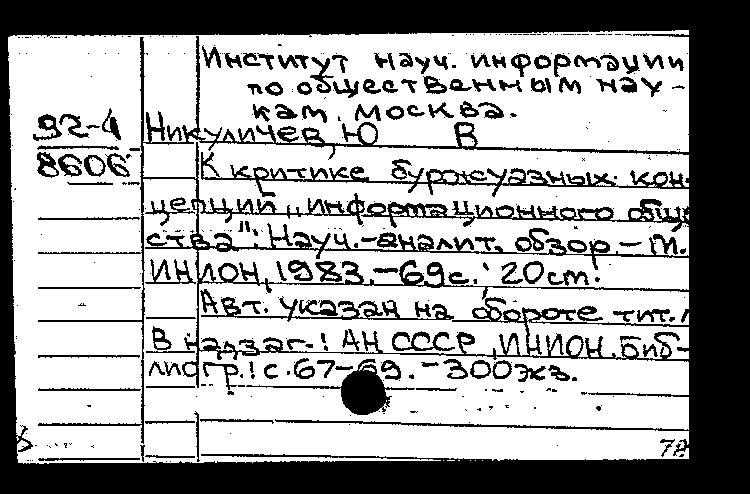 Институт науч. информации
по общественным нау-
кам, Москва.
92-4
Никуличев, Ю В
8606
К критике буржуазных кон-
цепций „информационного обще
ства": Науч.-аналит. обзор.- М.
ИНИОН, 1983.-69с.; 20см.
Авт. указан на обороте тит. л
В надзаг.: АН СССР, ИНИОН. Биб-
лиогр.: с.67-69.-300экз.